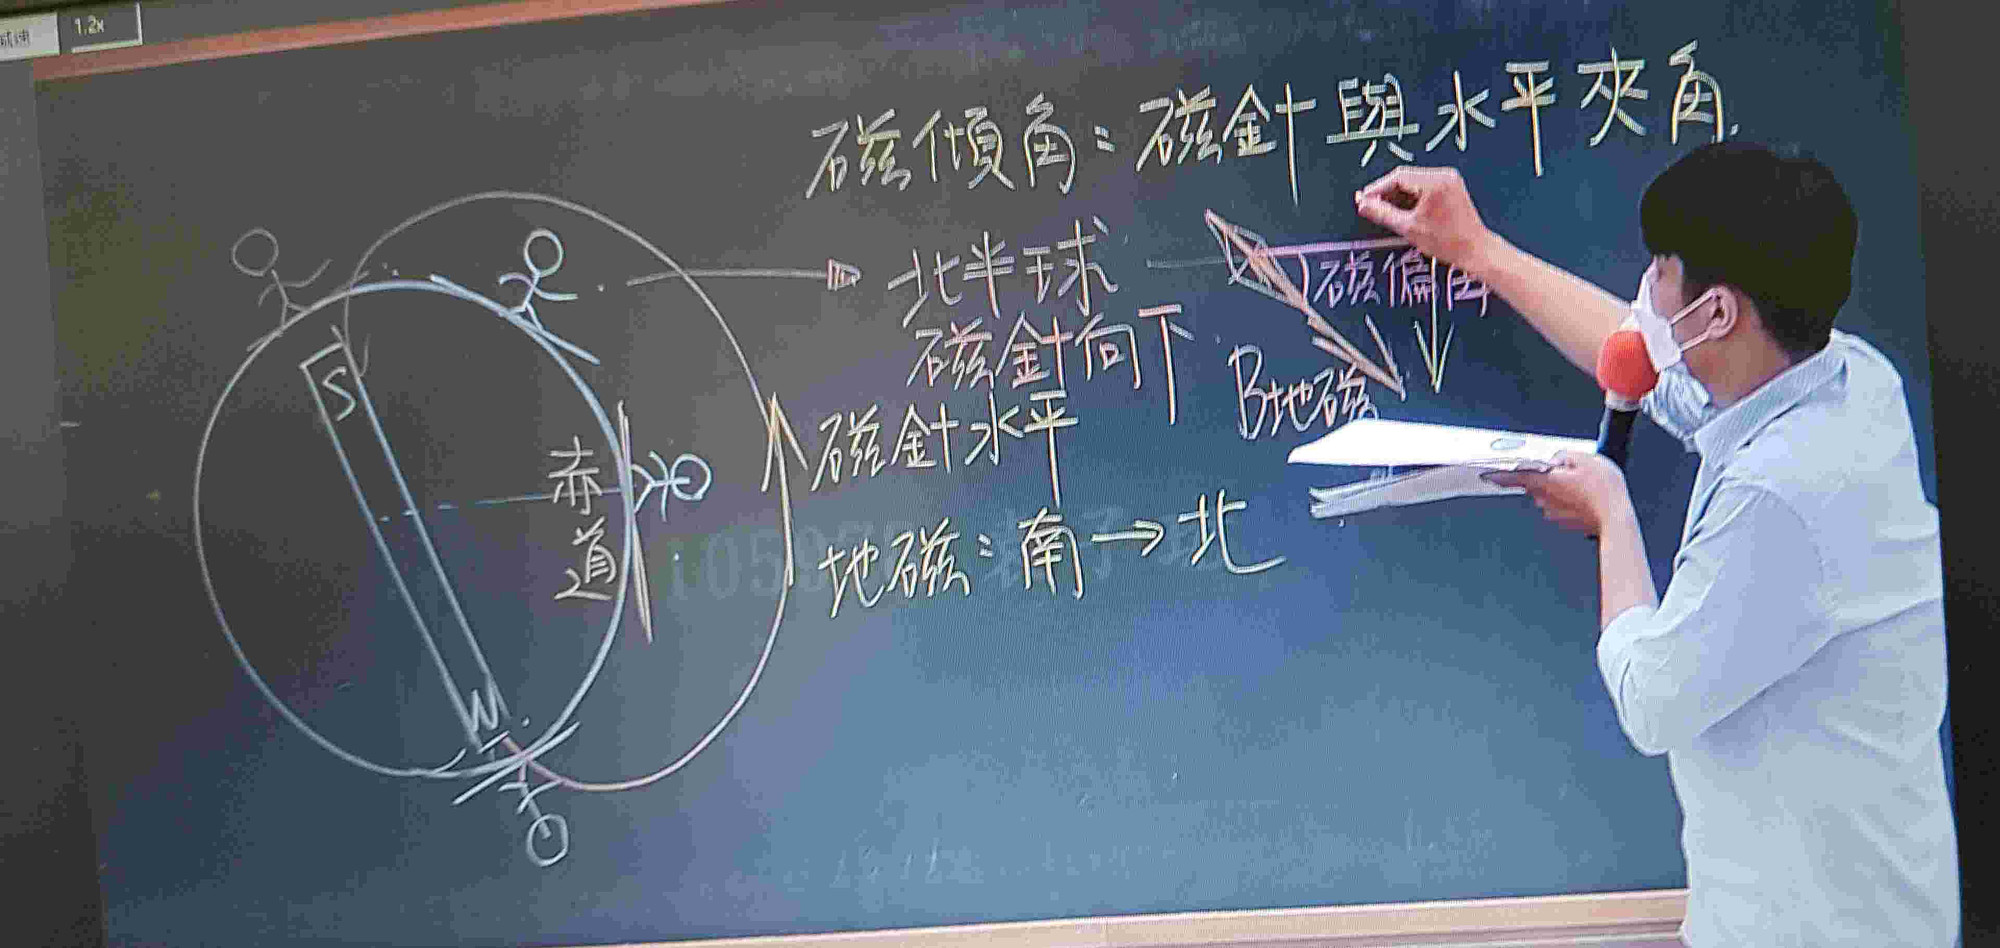 1.2x
磁傾角：磁針與水平夾角.
北半球
磁偏角
磁針向下
B地磁
磁針水平
地磁：南→北
S
赤道
N